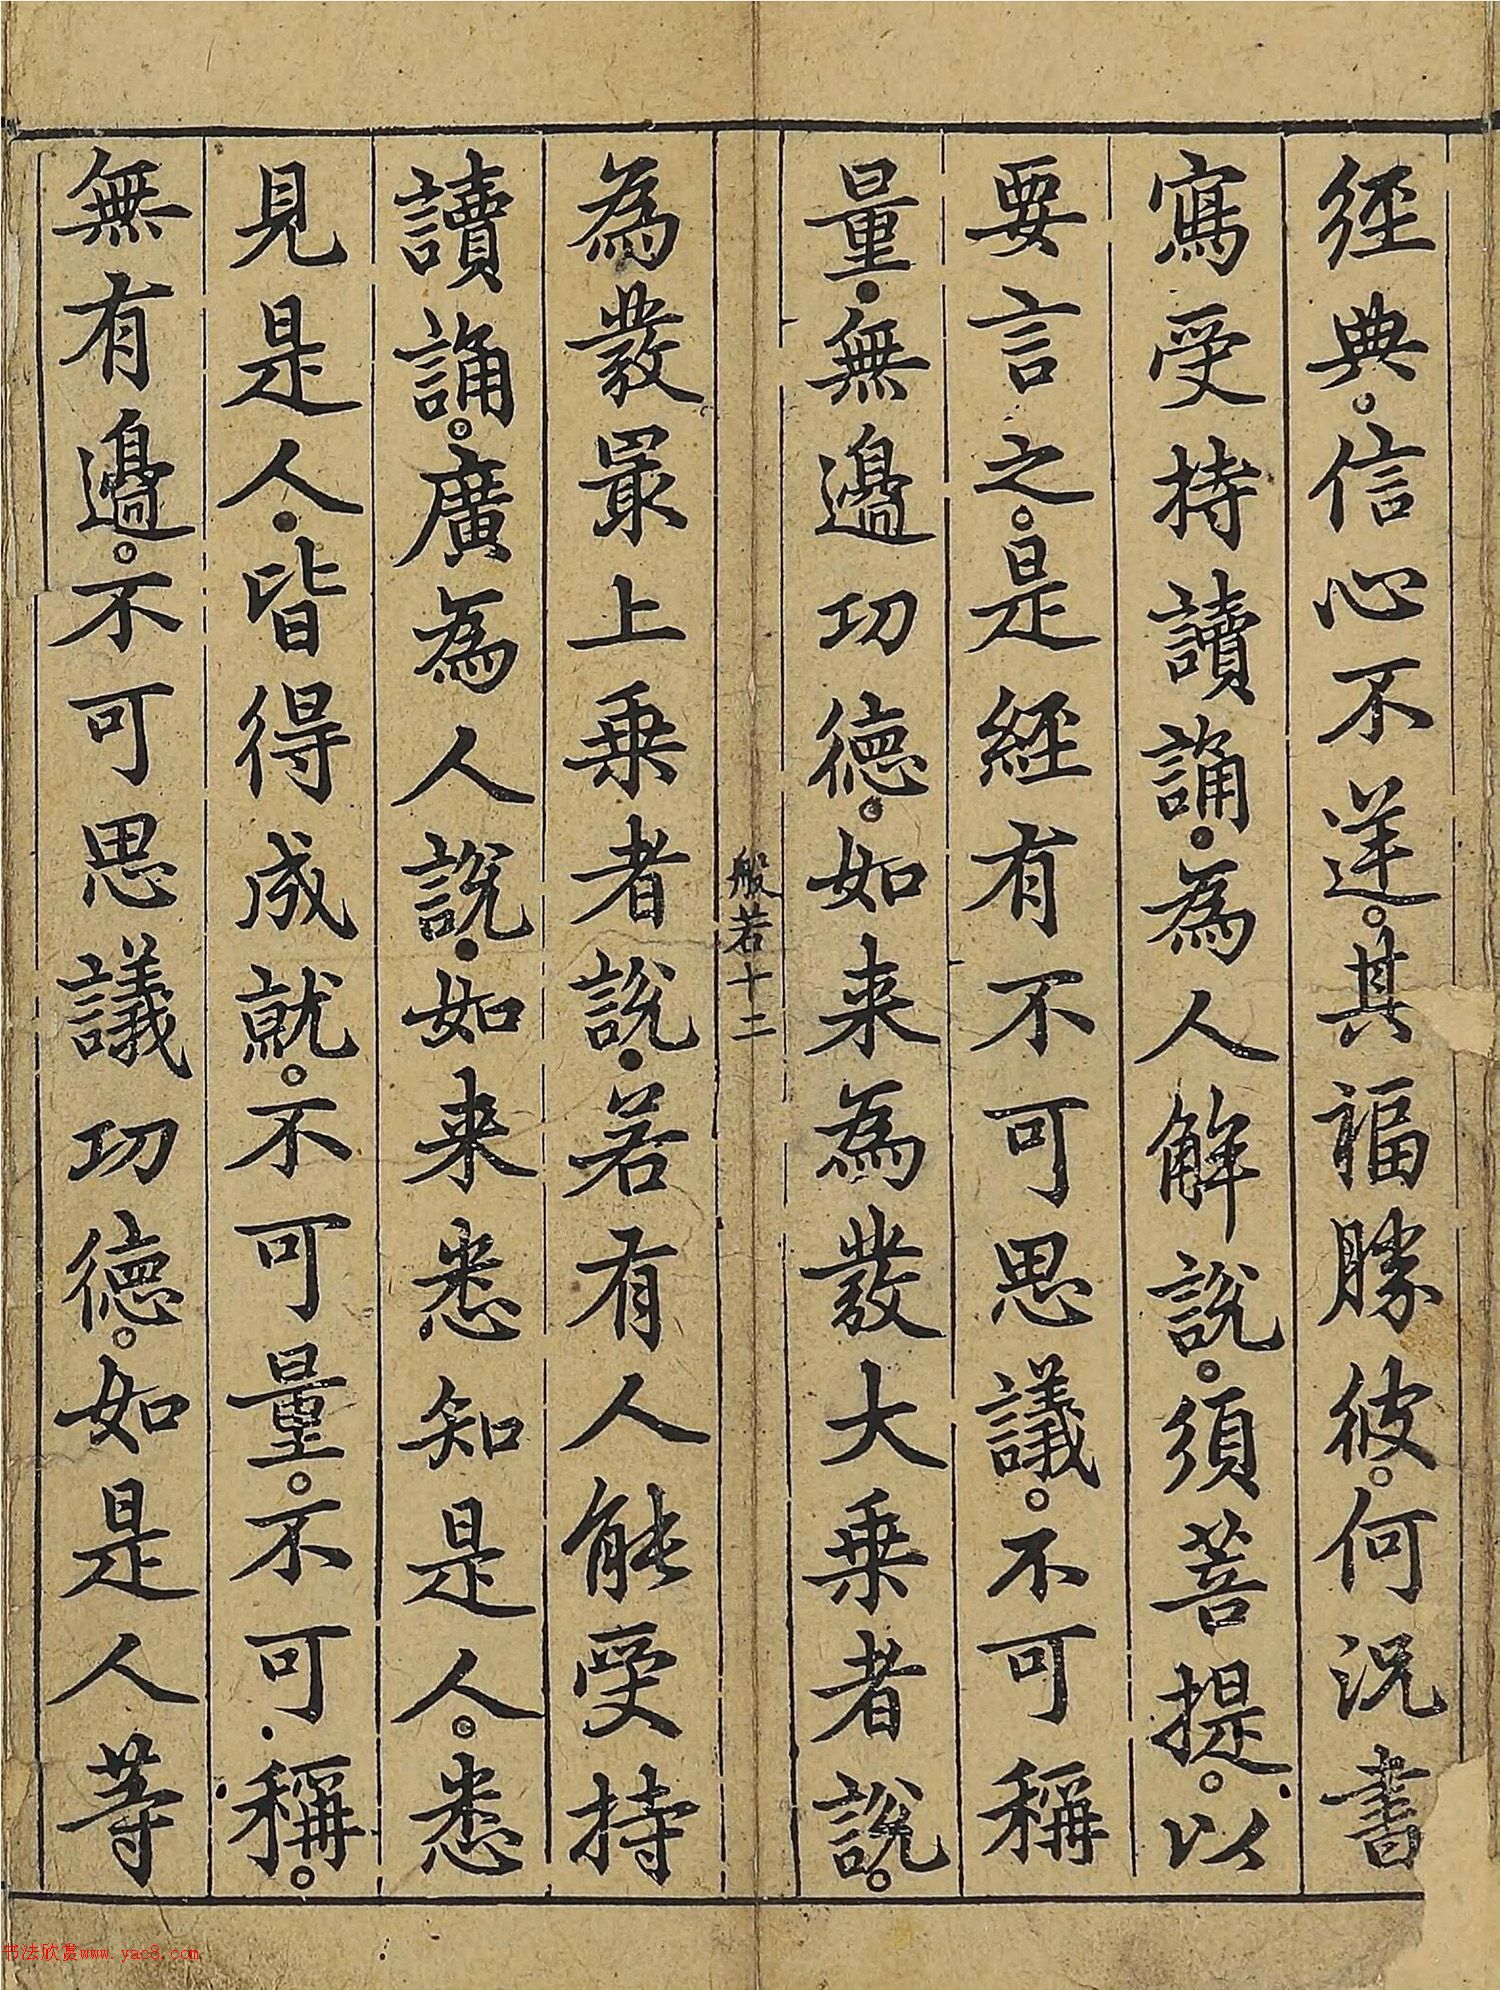 経典。信心不逆。其福勝彼。何況書
寫受持讀誦。為人解說。須菩提。以
要言之。是經有不可思議。不可稱
量。無邊功德。如来為發大乗者說。
般若十二
為發最上乗者說。若有人能受持
讀誦。廣為人說。如来悉知是人。悉
見是人。皆得成就。不可量。不可稱。
無有邊。不可思議功德。如是人等
书法欣赏www.yac8.com